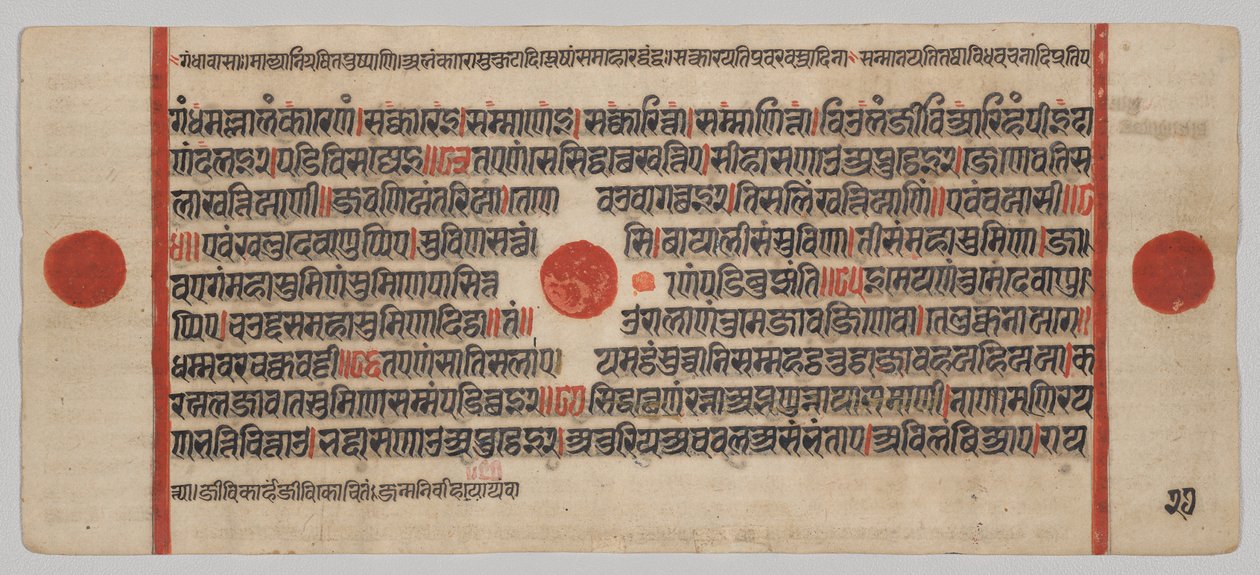 गंधावासाः।माल्यानिग्रथितपुष्पाणि।अलंकारामुकुटादिस्तेषांसमाहारद्वंद्वः।सत्कारयतिप्रवरवस्त्रादिना सन्मानयतितथाविधवचनादिप्रतिप
गंधमल्लालंकारेणं।सक्कारेइ।सम्माणेइ।सक्कारित्ता।सम्माणित्ता।विउलंजीविआरिहंपीइदा
णंदलइ२।पडिविसज्जेइ॥८३तएणंसेसिद्धत्थेखत्तिए।सीहासणाउअब्भुट्ठेइ२।जेणेवतिस
लाखत्तिआणी॥जवणिअंतरिआ।तेणे वउवागच्छइ२।तिसलिंखत्तिआणिं॥एवंवयासी॥८
४॥एवंखलुदेवाणुप्पिए।सुविणसत्थं सि।बायालीसंसुविणा।तीसंमहासुमिणा।जा
वएगंमहासुमिणंसुमिणेपासित्ता णंपडिबुज्झंति॥८५इमेयणंतुमेदेवाणु
प्पिए।चउद्दसमहासुमिणादिट्ठा॥तं॥ उरालाणंतुमेजावजिणेवा।तेलुक्कनायगे॥
धम्मवरचक्कवट्टी॥८६तएणंसातिसलाए यमट्ठंसुच्चानिसम्महट्ठतुट्ठाजावहयहिअया।क
रयलजावतेसुमिणेसम्मंपडिच्छइ२॥८७सिद्धत्थेणंरन्नाअब्भणुन्नायासमाणी।नाणामणिरय
णभत्तिचित्ताउ।भद्दासणाउअब्भुट्ठेइ२।अतुरियअचवलअसंभंताए।अविलंबिआए।राय
त्त्या।जीविकार्हंजीविकोचितं।जन्मनिर्वाहायायंवा
२७